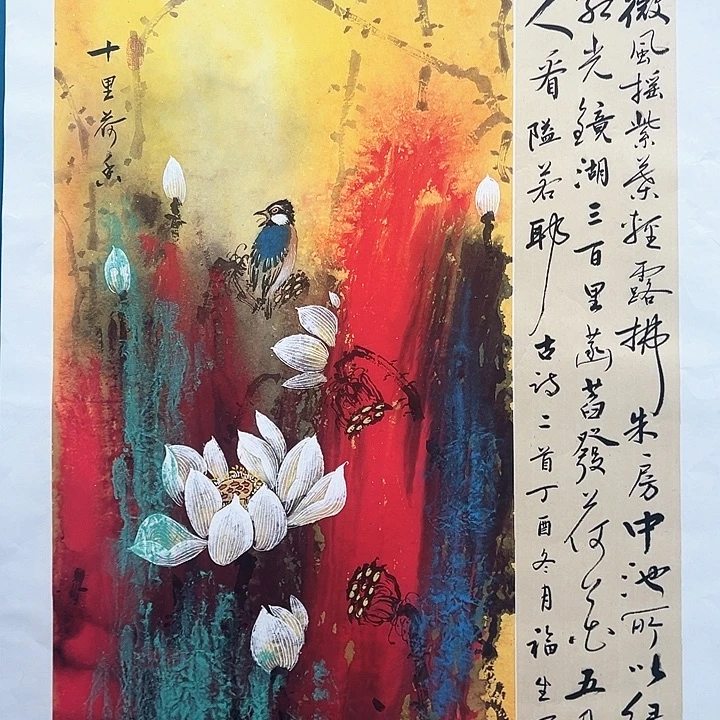 微風搖紫葉輕露拂朱房中池所以綠
紅光鏡湖三百里菡萏發荷花五
人看隘若耶古詩二首丁酉冬月福生
十里荷香